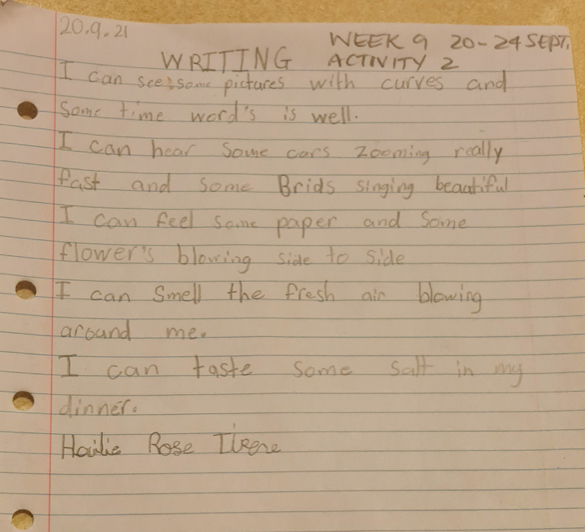 20.9.21
WEEK 9 20-24 SEPT.
WRITING ACTIVITY 2
I can see some pictures with curves and
Some time word's is well.
I can hear Some cars Zooming really
fast and some Brids singing beautiful
I can feel Some paper and Some
flower's blowing side to side
I can Smell the fresh air blowing
around me.
I can taste some salt in my
dinner.
Rose